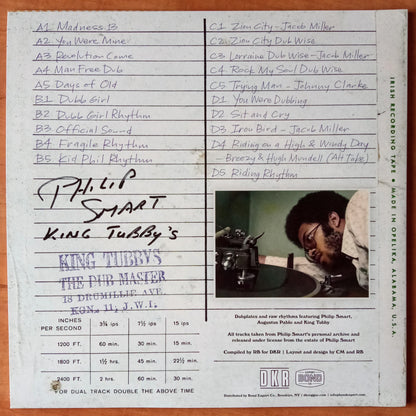 A1 Madness 13
A2 You Were Mine
A3 Revolution Come
A4 Man Free Dub
A5 Days of Old
B1 Dubb Girl
B2 Dubb Girl Rhythm
B3 Official Sound
B4 Fragile Rhythm
B5 Kid Phil Rhythm
C1 Zion City - Jacob Miller
C2 Zion City Dub Wise
C3 Lorraine Dub Wise - Jacob Miller
C4 Rock My Soul Dub Wise
C5 Trying Man - Johnny Clarke
D1 You Were Dubbing
D2 Sit and Cry
D3 Iron Bird - Jacob Miller
D4 Riding on a High & Windy Day
- Breezy & Hugh Mundell (Alt Take)
D5 Riding Rhythm
PHILIP
SMART
KING TUBBY'S
KING TUBBYS
THE DUB MASTER
18 DRUMILLIE AVE.
KGN. 11, J.W.I.
INCHES PER SECOND 3¾ ips 7½ ips 15 ips
1200 FT. 60 min. 30 min. 15 min.
1800 FT. 1½ hrs. 45 min. 22½ min.
2400 FT. 2 hrs. 60 min. 30 min.
FOR DUAL TRACK DOUBLE THE ABOVE TIME
Dubplates and raw rhythms featuring Philip Smart,
Augustus Pablo and King Tubby
All tracks taken from Philip Smart's personal archive and
released under license from the estate of Philip Smart
Compiled by RB for DKR | Layout and design by CM and RB
DKR
Distributed by Bond Export Co. Brooklyn, NY
IRISH RECORDING TAPE • MADE IN OPELIKA, ALABAMA U.S.A.